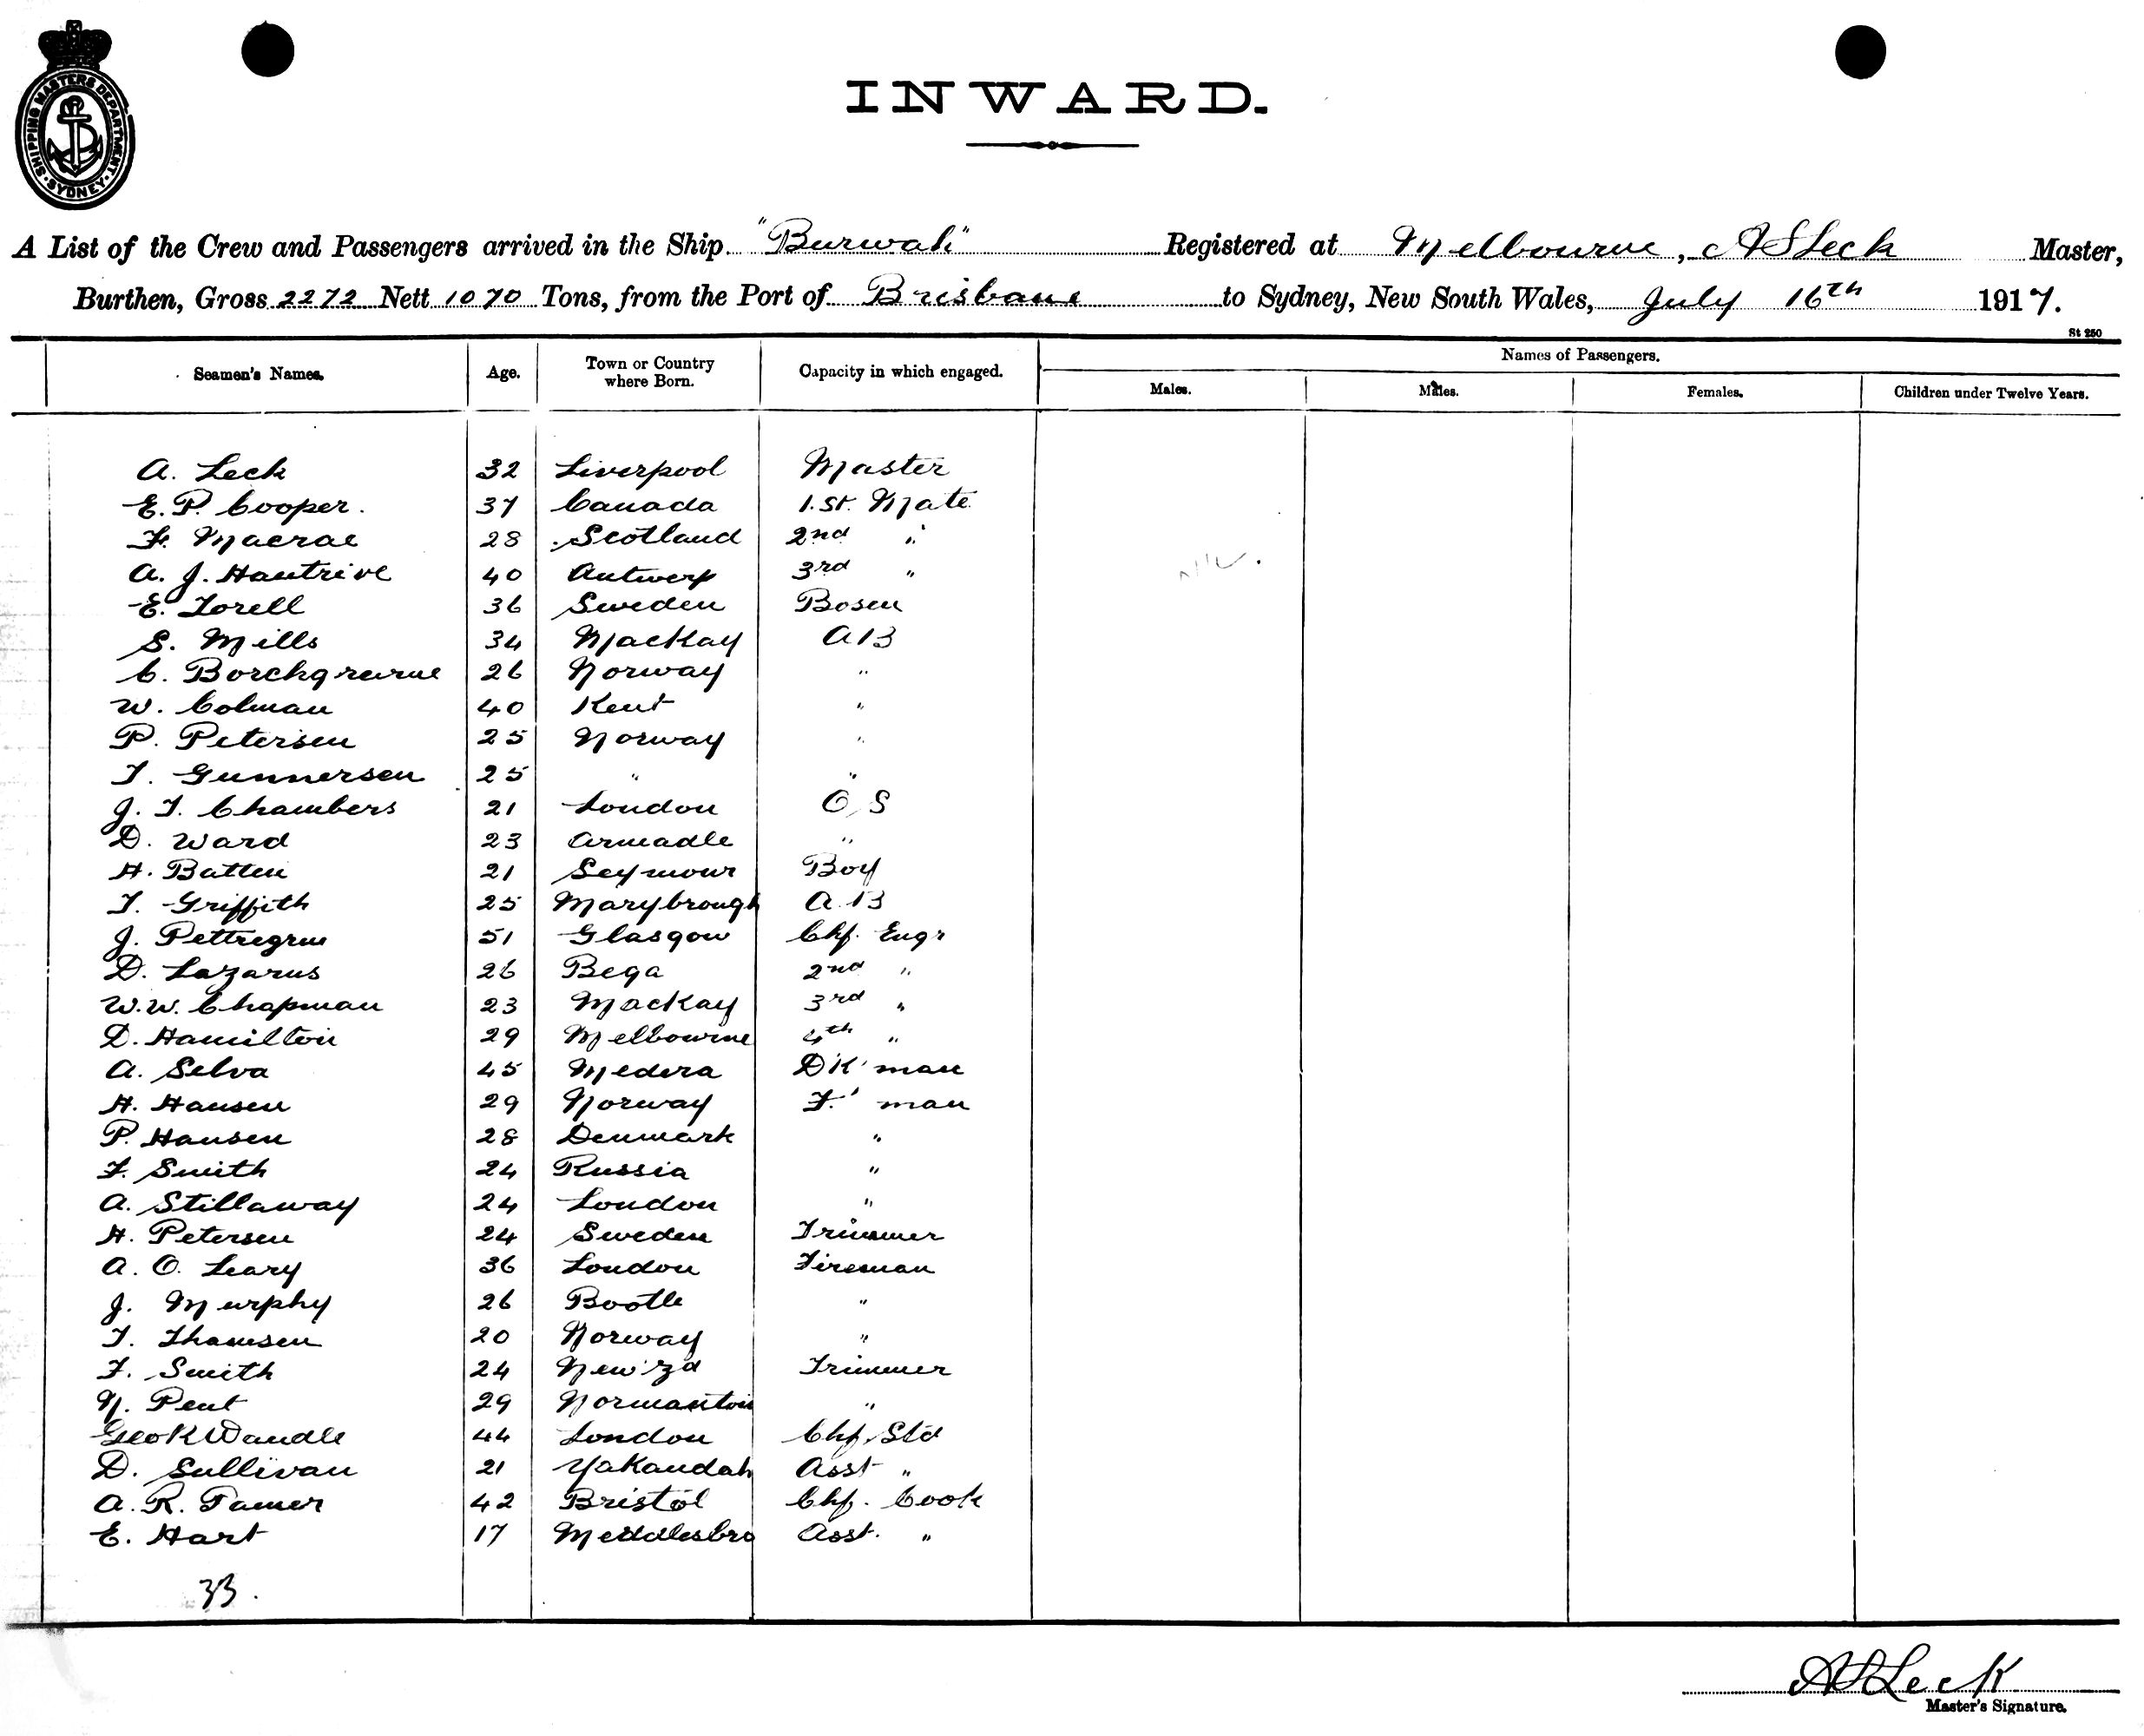 SHIPPING MASTERS DEPARTMENT · SYDNEY ·
INWARD.
A List of the Crew and Passengers arrived in the Ship "Burwah" Registered at Melbourne, A S Leck Master,
Burthen, Gross 2272 Nett 1070 Tons, from the Port of Brisbane to Sydney, New South Wales, July 16th 1917.
St 250
Seamen's Names. Age. Town or Country where Born. Capacity in which engaged. Names of Passengers.
Males. Males. Females. Children under Twelve Years.
A. Leck 32 Liverpool Master
E. P. Cooper. 37 Canada 1.st. Mate
F. Macrae 28 Scotland 2nd "
A. J. Hautrive 40 Antwerp 3rd "
E. Torell 36 Sweden Bosen
S. Mills 34 Mackay AB
C. Borchgrevine 26 Norway "
W. Colman 40 Kent "
P. Petersen 25 Norway "
T. Gunnersen 25 " "
J. T. Chambers 21 London O S
D. Ward 23 Armadle "
H. Batten 21 Seymour Boy
T. Griffith 25 Marybrough A.B
J. Pettregrew 51 Glasgow Chf. Engr
D. Lazarus 26 Bega 2nd "
W. W. Chapman 23 Mackay 3rd "
D. Hamilton 29 Melbourne 4th "
A. Selva 45 Medera DK'man
H. Hansen 29 Norway F.'man
P. Hansen 28 Denmark "
F. Smith 24 Russia "
A. Stillaway 24 London "
H. Petersen 24 Sweden Trimmer
A. O. Leary 36 London Fireman
J. Murphy 26 Bootle "
T. Thamsen 20 Norway "
F. Smith 24 New Zd Trimmer
N. Pent 29 Normanton "
Geo R Wandle 44 London Chf. Std
D. Sullivan 21 Yakandah Asst "
A. R. Tamer 42 Bristol Chf. Cook
E. Hart 17 Meddlesbro Asst. "
33.
A S Leck
Master's Signature.